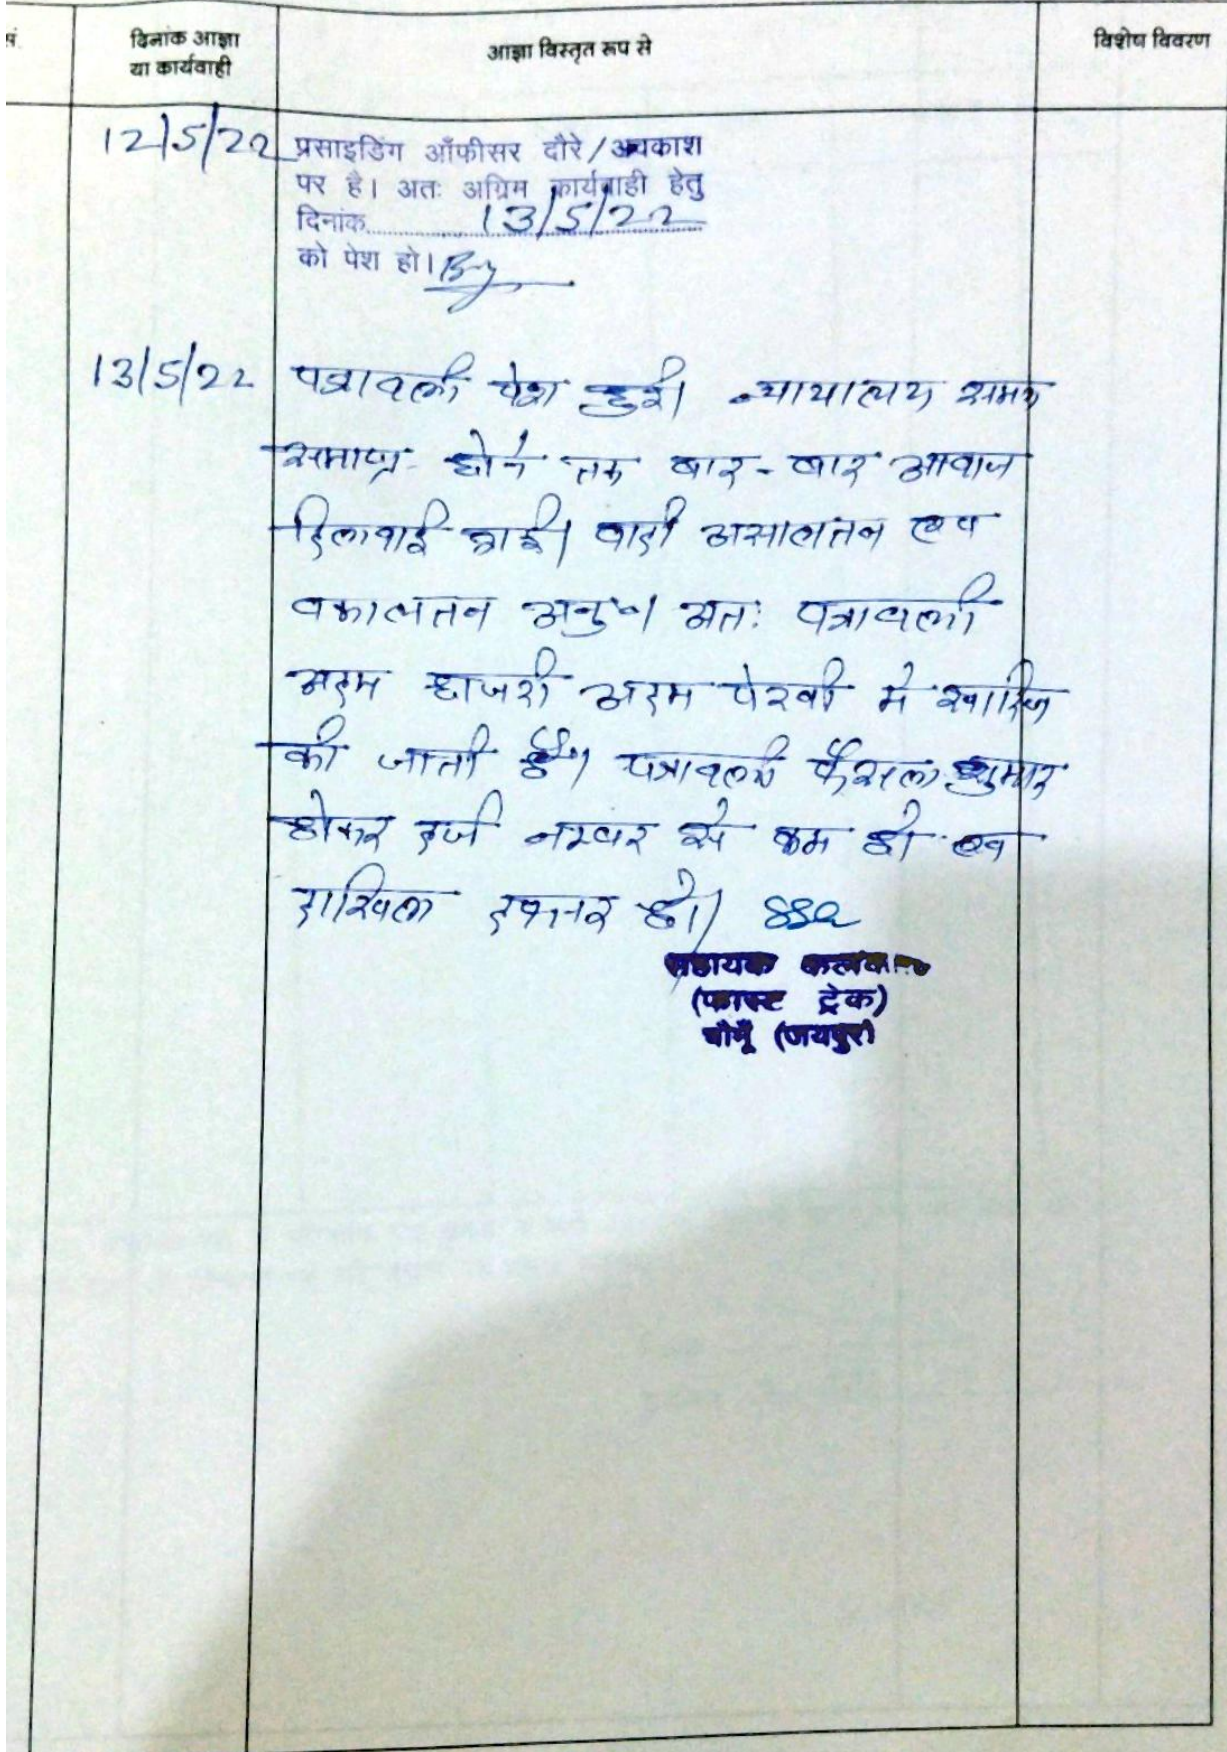 सं.
दिनांक आज्ञा
या कार्यवाही
आज्ञा विस्तृत रूप से
विशेष विवरण
12/5/22
प्रसाइडिंग ऑफीसर दौरे/अवकाश
पर है। अतः अग्रिम कार्यवाही हेतु
दिनांक 13/5/22
को पेश हो।
13/5/22
पत्रावली पेश हुई। न्यायालय समय
समाप्त होने तक बार-बार आवाज
दिलवाई गई। वादी असालतन एवं
वकालतन अनु॰। अतः पत्रावली
अदम हाजरी अदम पेरवी मे खारिज
की जाती है। पत्रावली फैसला शुमार
होकर दर्ज नम्बर से कम हो एवं
दाखिल दफ्तर हो।
सहायक कलक्टर
(फास्ट ट्रेक)
चौमूँ (जयपुर)